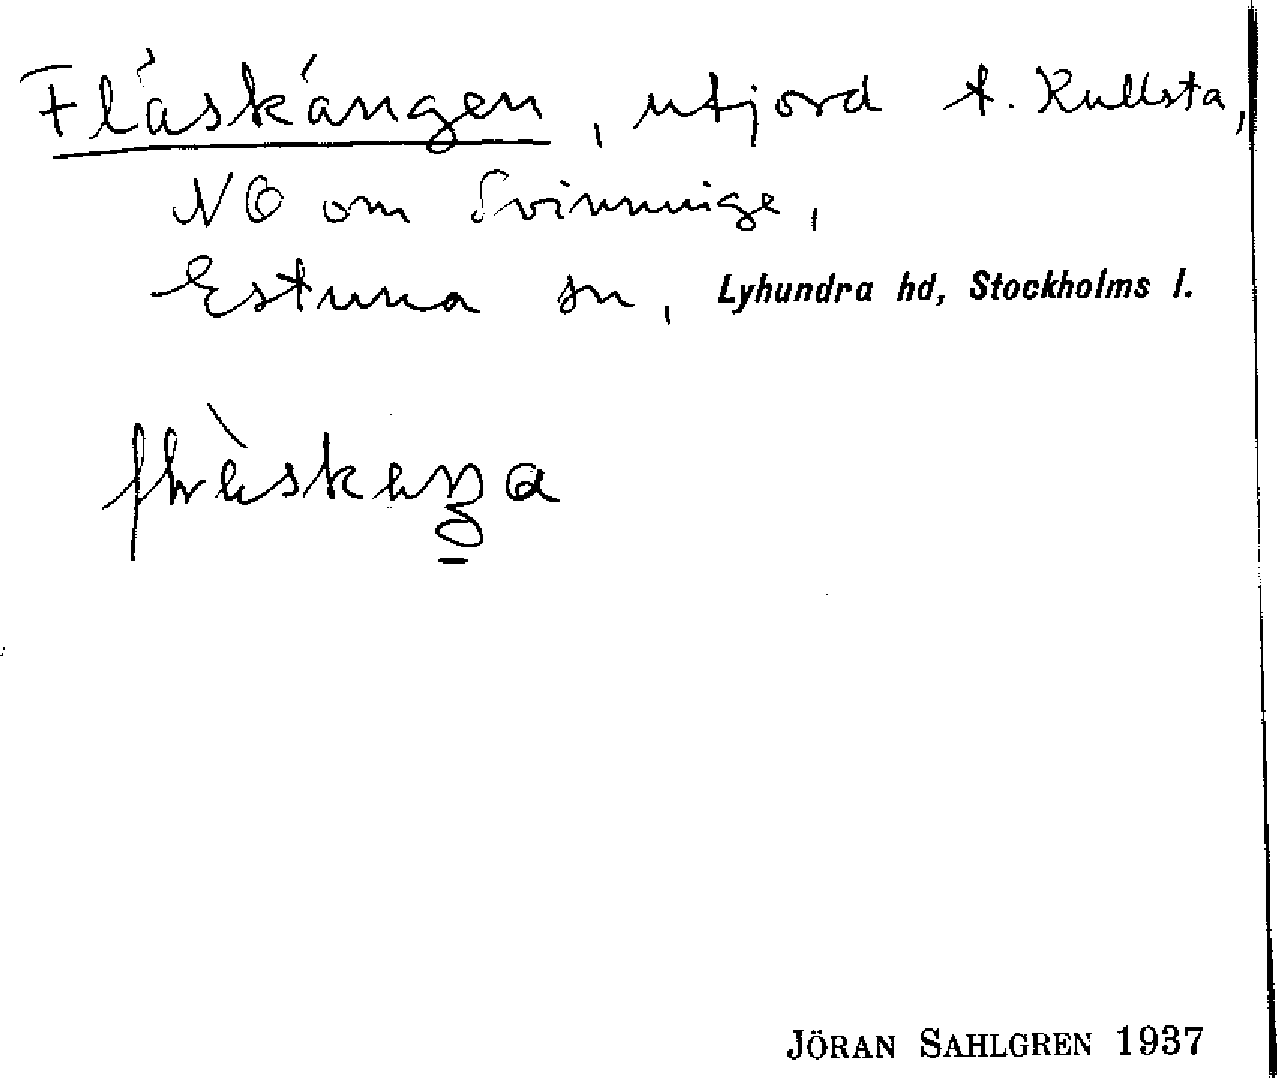 Fläskängen, utjord t. Kullsta,
NO om Svinninge,
Estuna sn, Lyhundra hd, Stockholms l.
JÖRAN SAHLGREN 1937